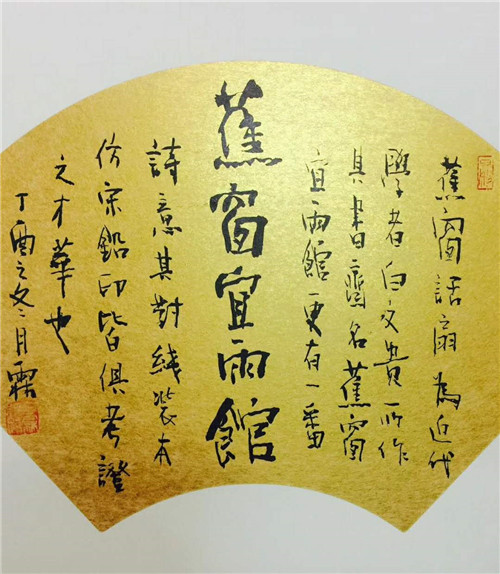 蕉窗話扇為近代
學者白文貴所作
其書齋名蕉窗
宜雨館更有一番
蕉窗宜雨館
詩意其對綫裝本
仿宋鉛印皆俱考證
之才華也
丁酉之冬月霖